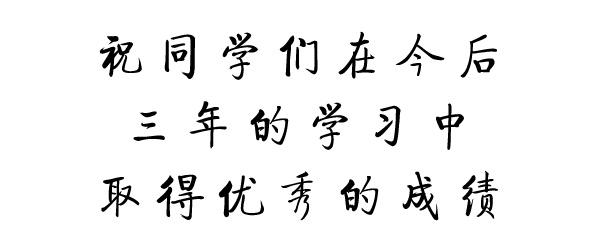 祝同学们在今后
三年的学习中
取得优秀的成绩